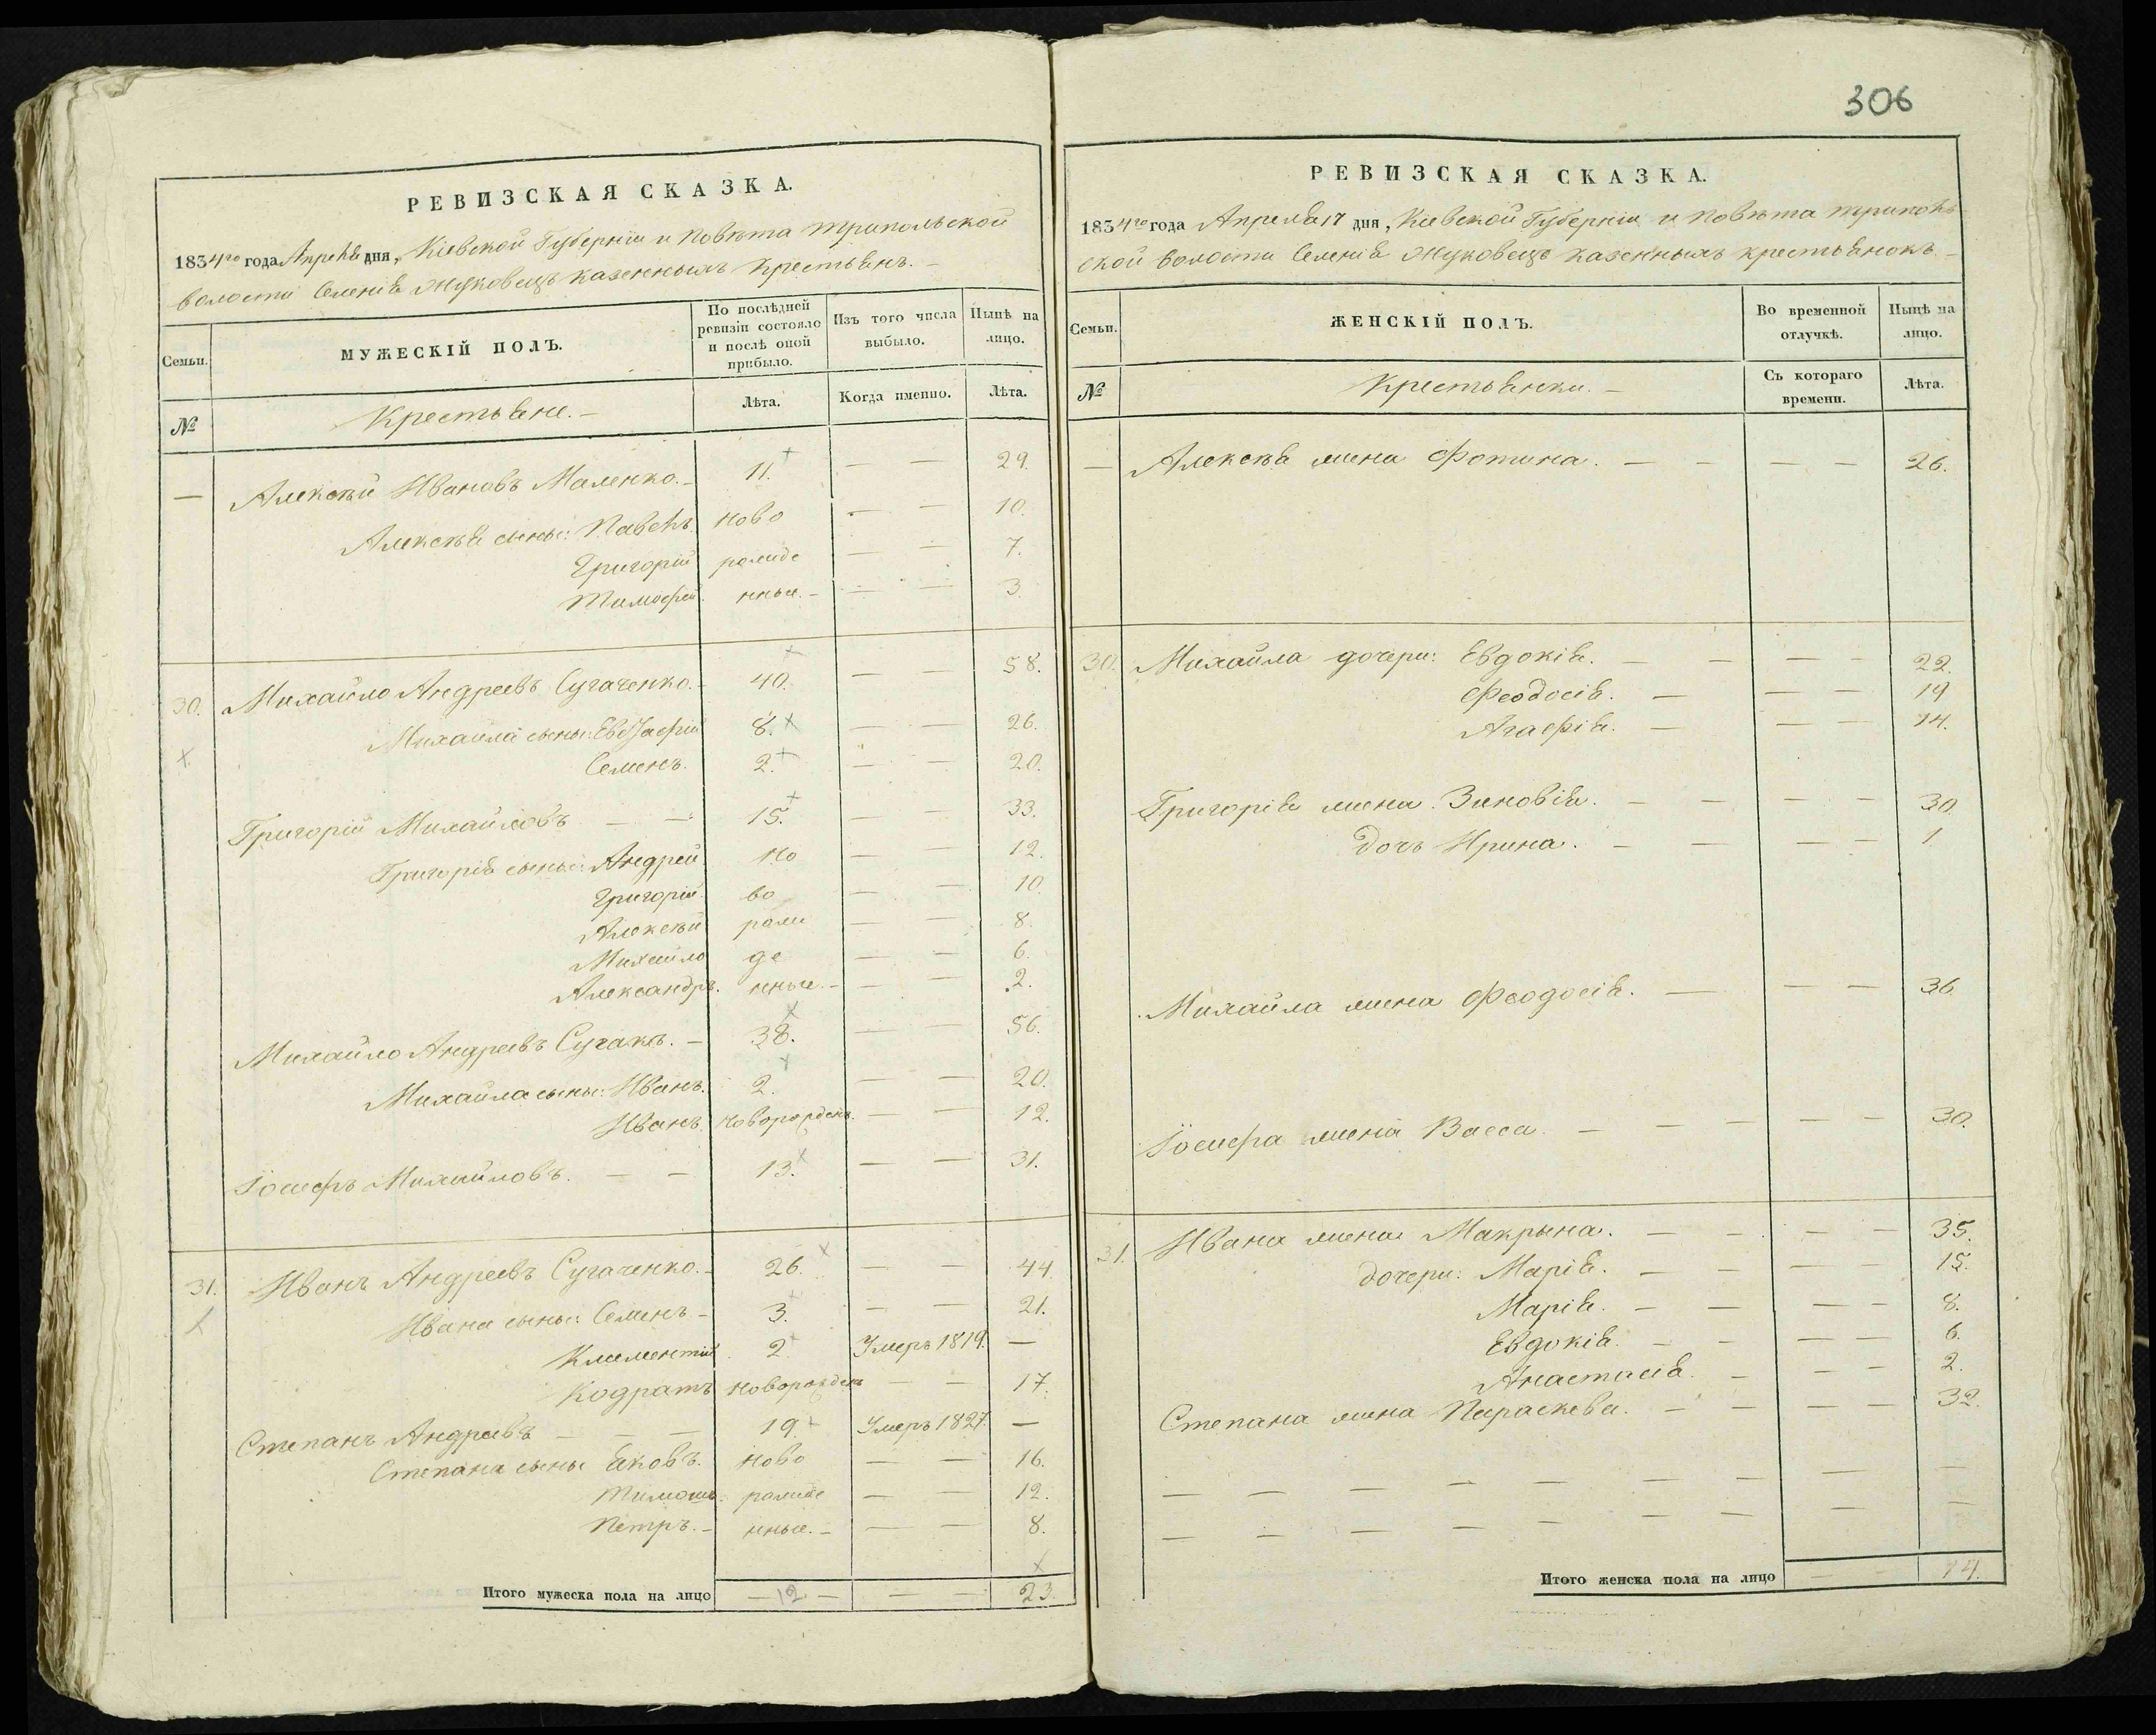 306
РЕВИЗСКАЯ СКАЗКА.
1834го года Апреля дня, Кіевской Губерніи и Повѣта трипольской
волости Селенія Жуковецъ казенныхъ крестьянъ.
Семьи.
МУЖЕСКІЙ ПОЛЪ.
По послѣдней ревизіи состояло и послѣ оной прибыло.
Изъ того числа выбыло.
Нынѣ на лицо.
№
Крестьяне.
Лѣта.
Когда именно.
Лѣта.
— Алексѣй Ивановъ Маленко. 11. — — 29.
Алексѣя сыны: Павелъ ново — — 10.
Григорій рожде — — 7.
Тимофей нные. — — 3.
30. Михайло Андреевъ Сугаченко. 40. — — 58.
Михайла сыны: Евстафій 8. — — 26.
Семенъ. 2. — — 20.
Григорій Михайловъ — — 15. — — 33.
Григорія сыны: Андрей. но — — 12.
Григорій во — — 10.
Алексѣй рож — — 8.
Михайло де — — 6.
Александръ. нные. — — 2.
Михайло Андреевъ Сугакъ. — 38. — — 56.
Михайла сыны: Иванъ. 2. — — 20.
Иванъ новорожденъ. — — 12.
Іосифъ Михайловъ. — — 13. — — 31.
31. Иванъ Андреевъ Сугаченко. 26. — — 44.
Ивана сыны: Семенъ. 3. — — 21.
Климентій 2. Умеръ 1819. —
Кодратъ новорожденъ — — 17.
Степанъ Андреевъ — — — 19. Умеръ 1827. —
Степана сыны Яковъ. ново — — 16.
Тимошъ. рожде — — 12.
Петръ. нные. — — 8.
Итого мужеска пола на лицо — 12 — — — 23.
РЕВИЗСКАЯ СКАЗКА.
1834го года Апреля 17 дня, Кіевской Губерніи и Повѣта триполь
ской волости Селенія Жуковецъ казенныхъ крестьянокъ.
Семьи.
ЖЕНСКІЙ ПОЛЪ.
Во временной отлучкѣ.
Нынѣ на лицо.
№
Крестьянки.
Съ котораго времени.
Лѣта.
— Алексѣя жена Фотина. — — — — 26.
30. Михайла дочери: Евдокія. — — — — 22.
Феодосія. — — — 19
Агафія. — — — 14.
Григорія жена Зиновія. — — — — 30
дочь Ирина. — — — — 1
Михайла жена Феодосія. — — — 36
Іосифа жена Васса. — — — — — 30.
31. Ивана жена Макрына. — — — — 35.
дочери: Марія. — — — — 15.
Марія. — — — — 8.
Евдокія. — — — — 6.
Анастасія. — — — 2.
Степана жена Параскева. — — — — 32.
— — — — — — — — —
— — — — — — — — —
Итого женска пола на лицо — — 14.